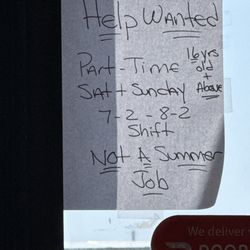 Help Wanted
Part-Time 16 yrs old + Above
Sat + Sunday
7-2 - 8-2
Shift
Not A Summer
Job
We deliver
DOOR